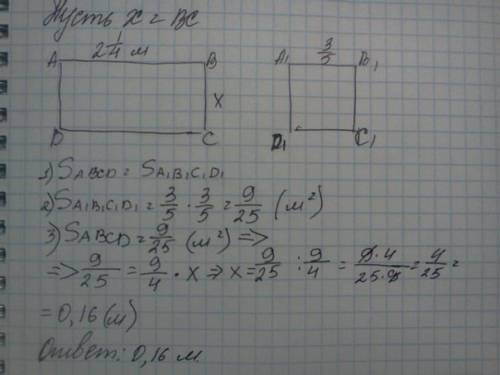 Пусть x = BC
2 1/4 м 3/5
A B A₁ B₁
x
D C D₁ C₁
1) SABCD = SA₁B₁C₁D₁
2) SA₁B₁C₁D₁ = 3/5 · 3/5 = 9/25 (м²)
3) SABCD = 9/25 (м²) =>
=> 9/25 = 9/4 · x => x = 9/25 : 9/4 = 9·4/25·9 = 4/25 =
= 0,16 (м)
Ответ: 0,16 м.